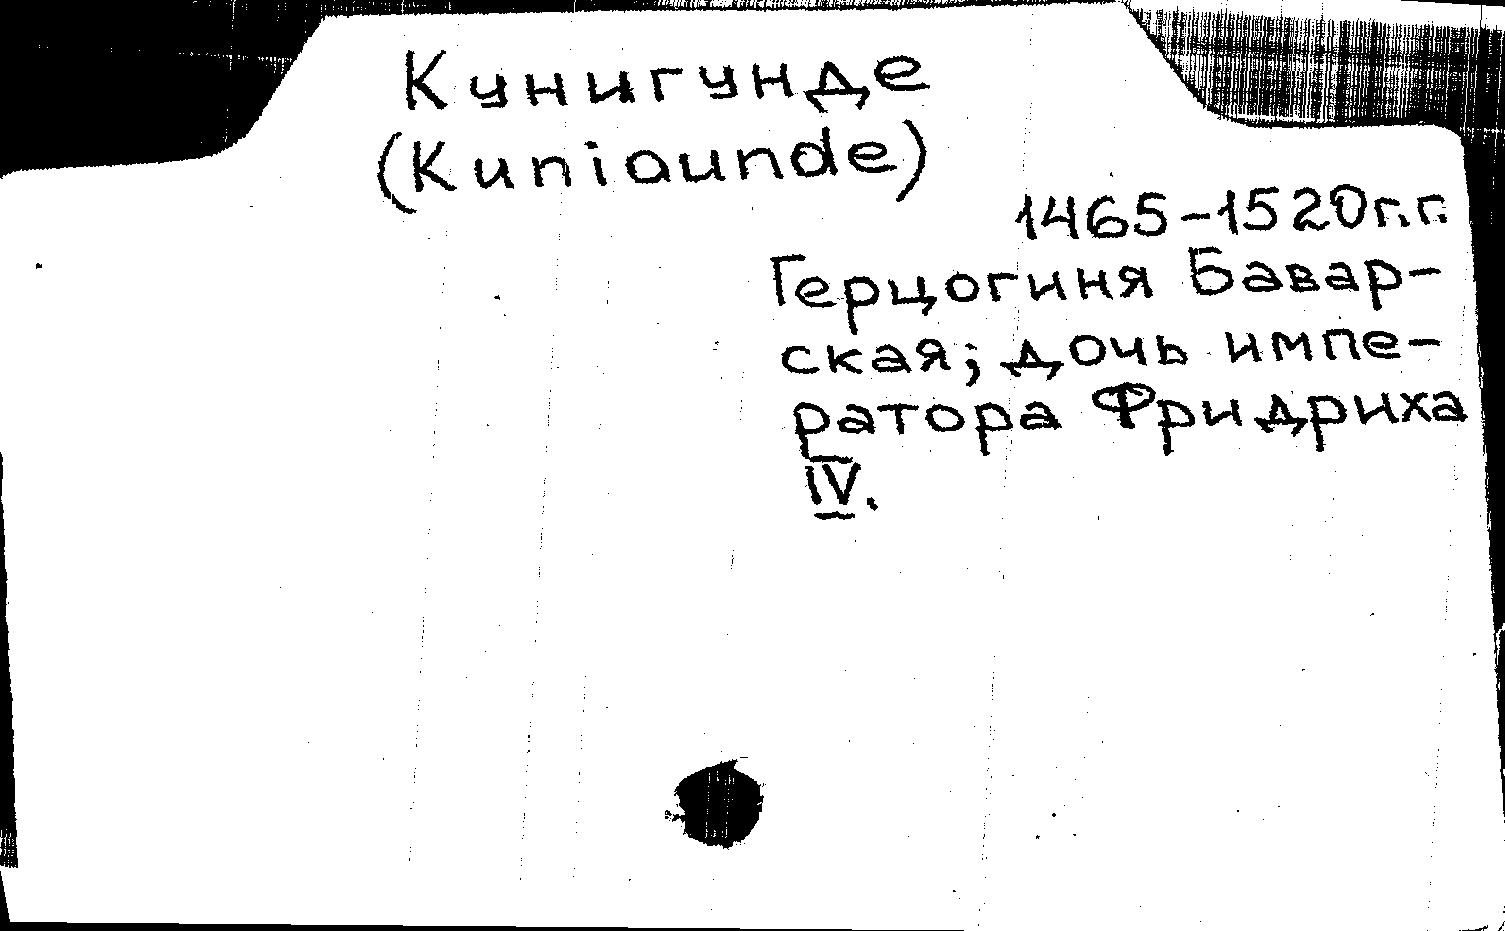 Кунигунде
(Kuniaunde)
1465-1520г.г.
Герцогиня Бавар-
ская; дочь импе-
ратора Фридриха
IV.